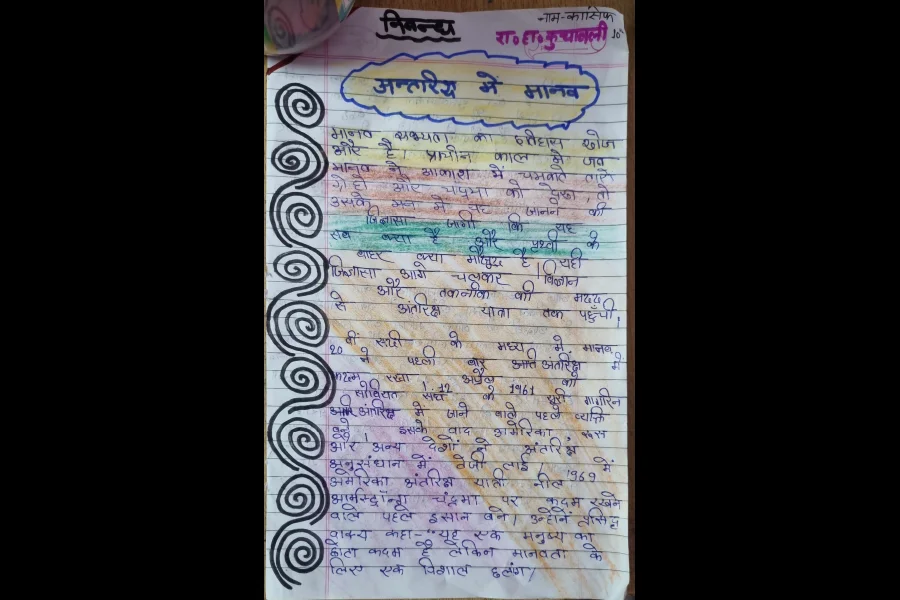 निबन्ध
नाम-कासिफ
रा॰ हा॰ कुचावली 10
अन्तरिक्ष मे मानव
मानव सभ्यता का इतिहास खोज
और है। प्राचीन काल मे जब
मानव ने आकाश में चमकते तारो
ग्रेहो और चंद्रमा को देखा, तो
उसके मन मे यह जानने की
जिज्ञासा जागी कि यह
सब क्या है और पृथ्वी के
बाहर क्या मौजूद है। यही
जिज्ञासा आगे चलकर विज्ञान
और तकनीक की मदद
से अंतरिक्ष यात्रा तक पहुँची।
20 वीं सदी के मध्य मे मानव
ने पहली बार अंतरिक्ष में
कदम रखा। 12 अप्रैल 1961 को
सोवियत संघ के यूरी गागरिन
अंतरिक्ष मे जाने वाले पहले व्यक्ति
बने। इसके बाद अमेरिका, रूस
और अन्य देशों ने अंतरिक्ष
अनुसंधान में तेजी लाई। 1969 में
अमेरिका अंतरिक्ष यात्री नील
आर्मस्ट्रॉन्ग चंद्रमा पर कदम रखने
वाले पहले इंसान बने। उन्होनें
वाक्य कहा-"यह एक मनुष्य का
छोटा कदम है लेकिन मानवता के
लिए एक विशाल छलांग।